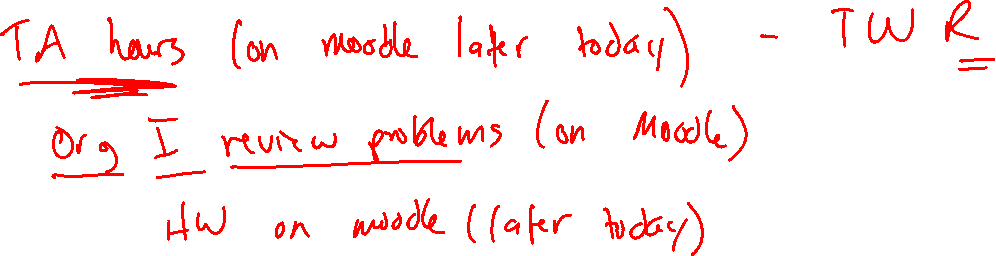 TA hours (on moodle later today) - TWR
Org I review problems (on Moodle)
HW on moodle (later today)